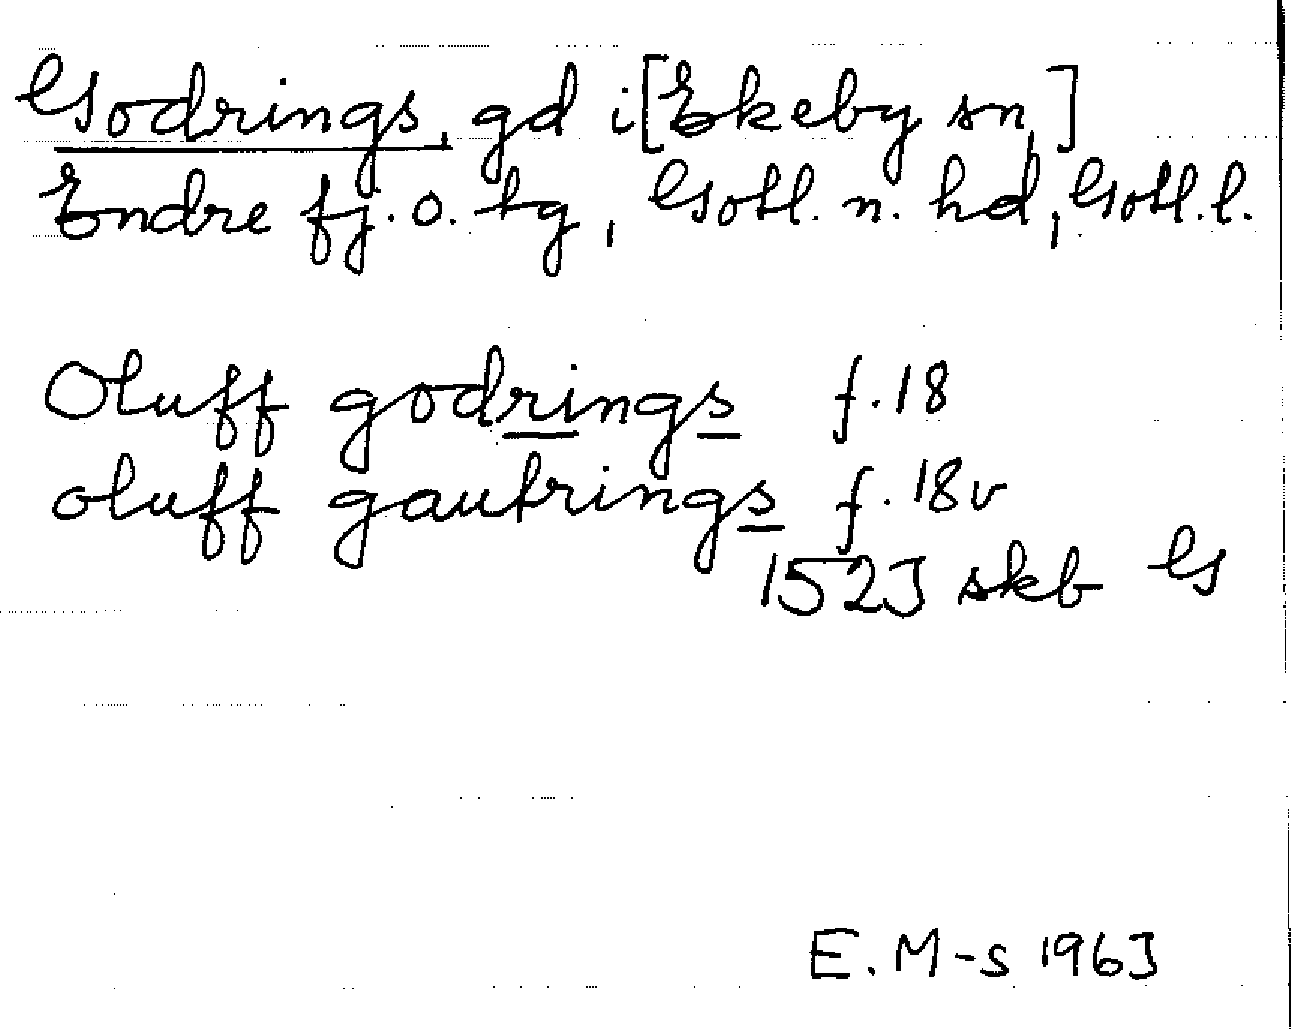 Godrings, gd i [Ekeby sn,]
Endre fj. o. tg, Gotl. n. hd, Gotl. l.
Oluff godrings f. 18
oluff gautrings f. 18v
1523 skb G
E. M-s 1963